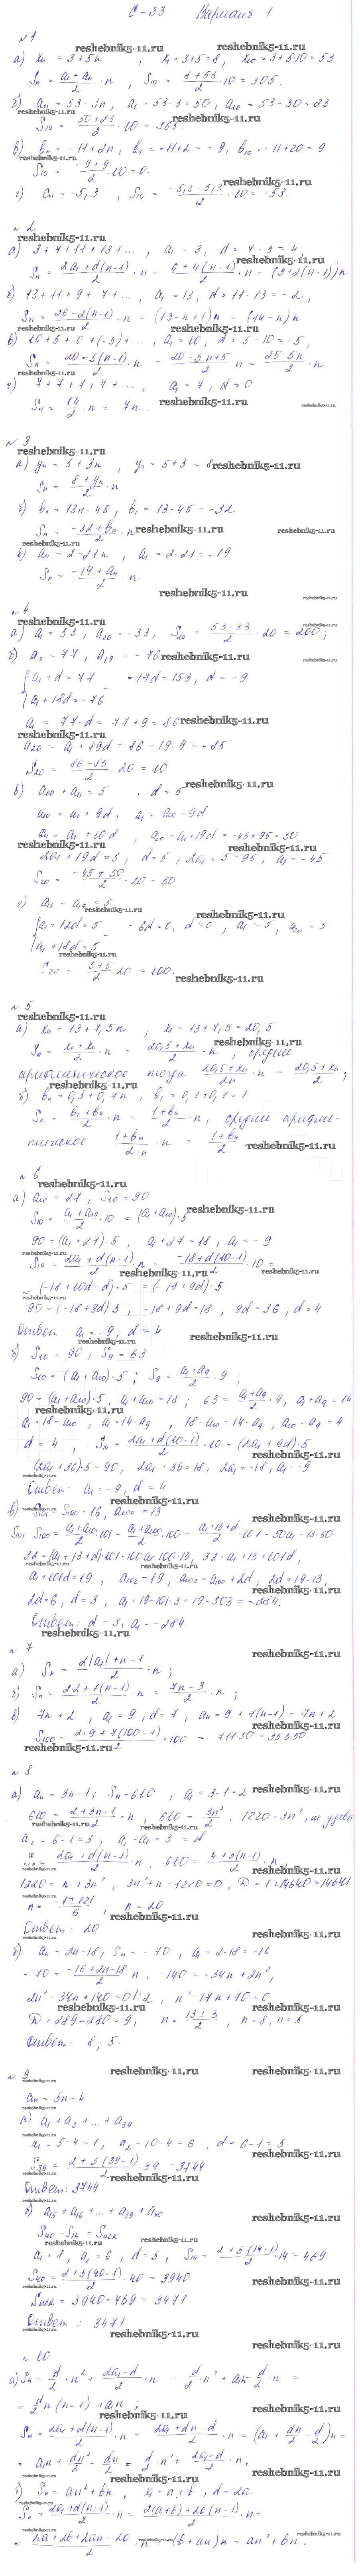 С-33 Вариант 1
№1
reshebnik5-11.ru
а) xn = 3+5n , x1 = 3+5 = 8, x10 = 3+5·10 = 53
Sn = (a1+an)/2 · n , S10 = (8+53)/2 · 10 = 305.
б) an = 53-3n, a1 = 53-3 = 50, a10 = 53-30 = 23
S10 = (50+23)/2 · 10 = 365.
в) bn = -11+2n, b1 = -11+2 = -9, b10 = -11+20 = 9
S10 = (-9+9)/2 · 10 = 0.
г) cn = -5,3 , S10 = (-5,3-5,3)/2 · 10 = -53.
№2
а) 3+7+11+13+..., a1 = 3, d = 7-3 = 4
Sn = (2a1+d(n-1))/2 · n = (6+4(n-1))/2 · n = (3+2(n-1))n
б) 13+11+9+7+..., a1 = 13, d = 11-13 = -2,
Sn = (26-2(n-1))/2 · n = (13-n+1)n = (14-n)n
в) 10+5+0+(-5)+..., a1 = 10, d = 5-10 = -5,
Sn = (20-5(n-1))/2 · n = (20-5n+5)/2 n = (25-5n)/2 · n
г) 7+7+7+7+..., a1 = 7, d = 0
Sn = 14/2 · n = 7n.
№3
а) yn = 5+3n , y1 = 5+3 = 8
Sn = (8+yn)/2 · n
б) bn = 13n-45, b1 = 13-45 = -32
Sn = (-32+bn)/2 · n
в) an = 2-21n , a1 = 2-21 = -19
Sn = (-19+an)/2 · n
№4
а) a1 = 53, a20 = -33, S20 = (53-33)/2 · 20 = 200;
б) a2 = 77, a19 = -76
a1+d = 77 -17d = 153, d = -9
a1+18d = -76
a1 = 77-d = 77+9 = 86
a20 = a1+19d = 86-19·9 = -85
S20 = (86-85)/2 · 20 = 10
в) a10+a11 = 5 , d = 5
a10 = a1+9d, a1 = a10-9d
a11 = a1+10d , a20 = a1+19d = -45+95 = 50
2a1+19d = 5, d = 5, 2a1 = 5-95, a1 = -45
S20 = (-45+50)/2 · 20 = 50
a1+12d = 5 -6d = 0, d = 0, a1 = 5, a20 = 5
a1+18d = 5
S20 = (5+5)/2 · 20 = 100.
№5
а) xn = 13+7,5n , x1 = 13+7,5 = 20,5
Sn = (x1+xn)/2 · n = (20,5+xn)/2 · n , среднее
арифметическое тогда (20,5+xn)/2n · n = (20,5+xn)/2;
б) bn = 0,3+0,7n, b1 = 0,3+0,7 = 1
Sn = (b1+bn)/2 · n = (1+bn)/2 · n, среднее арифме-
тическое (1+bn)/(2·n) · n = (1+bn)/2
№6
а) a10 = 27, S10 = 90
S10 = (a1+a10)/2 · 10 = (a1+a10)·5
90 = (a1+27)·5 , a1+27 = 18, a1 = -9
S10 = (2a1+d(n-1))/2 · n = (-18+d(10-1))/2 · 10 =
= (-18+10d-d)·5 = (-18+9d)·5
90 = (-18+9d)5 , -18+9d = 18, 9d = 36, d = 4
Ответ: a1 = -9, d = 4
б) S10 = 90, S9 = 63
S10 = (a1+a10)·5; S9 = (a1+a9)/2 · 9;
90 = (a1+a10)·5, a1+a10 = 18; 63 = (a1+a9)/2 · 9, a1+a9 = 14
a1 = 18-a10, a1 = 14-a9, 18-a10 = 14-a9, a10-a9 = 4
d = 4 , S10 = (2a1+d(10-1))/2 · 10 = (2a1+9d)·5
(2a1+36)·5 = 90, 2a1+36 = 18, 2a1 = -18, a1 = -9
Ответ: a1 = -9, d = 4
в) S101-S100 = 16, a100 = 13
S101-S100 = (a1+a101)/2 · 101 - (a1+a100)/2 · 100 = (a1+13+d)/2 · 101 - 50a1 - 13·50
32 = (a1+13+d)101-100a1-100·13, 32 = a1+13+101d,
a1+101d = 19, a102 = 19, a102 = a100+2d, 2d = 19-13,
2d = 6, d = 3, a1 = 19-101·3 = 19-303 = -284.
Ответ: d = 3, a1 = -284.
№7
а) Sn = (2|a1|+n-1)/2 · n;
в) 7n+2 , a1 = 9, d = 7, an = 9+7(n-1) = 7n+2
S100 = (2·9+7(100-1))/2 · 100 = 71150 = 35550
№8
а) an = 3n-1; Sn = 610 , a1 = 3-1 = 2
610 = (2+3n-1)/2 · n, 610 = 3n²/2, 1220 = 3n², не удовл
a2 = 6-1 = 5, a2-a1 = 3 = d
Sn = (2a1+d(n-1))/2 · n, 610 = (4+3(n-1))/2 · n
1220 = n+3n², 3n²+n-1220 = 0, D = 1+14640 = 14641
n = (-1±121)/6 , n = 20
Ответ: 20
б) an = 2n-18, Sn = -70 , a1 = 2-18 = -16
-70 = (-16+2n-18)/2 n, -140 = -34n+2n²,
2n²-34n+140 = 0 |:2, n²-17n+70 = 0
D = 289-280 = 9,
Ответ: 8; 5.
№9
an = 5n-4
а) a1+a3+...+a39
a1 = 5-4 = 1, a2 = 10-4 = 6 , d = 6-1 = 5
S39 = (2+5(39-1))/2 · 39 = 3744
Ответ: 3744
б) a15+a16+...+a39+a40
S40-S14 = Sиск
a1 = 1, a2 = 6, d = 5, S14 = (2+5(14-1))/2 · 14 = 469
S40 = (2+5(40-1))/2 · 40 = 3940
Sиск = 3940-469 = 3471.
Ответ: 3471
№10
а) Sn = d/2 · n² + (2a1-d)/2 · n = d/2 · n² + a1n - d/2 · n =
= d/2 n(n-1)+a1n;
Sn = (2a1+d(n-1))/2 · n = (2a1+dn-d)/2 · n = (a1+dn/2-d/2)n =
= a1n + dn²/2 - dn/2 = d/2 · n² + (2a1-d)/2 · n.
б) Sn = an²+bn,
Sn = (2a1+d(n-1))/2 · n = (2(a+b)+2a(n-1))/2 · n =
= (2a+2b+2an-2a)/2 · n = (b+an)n = an²+bn.